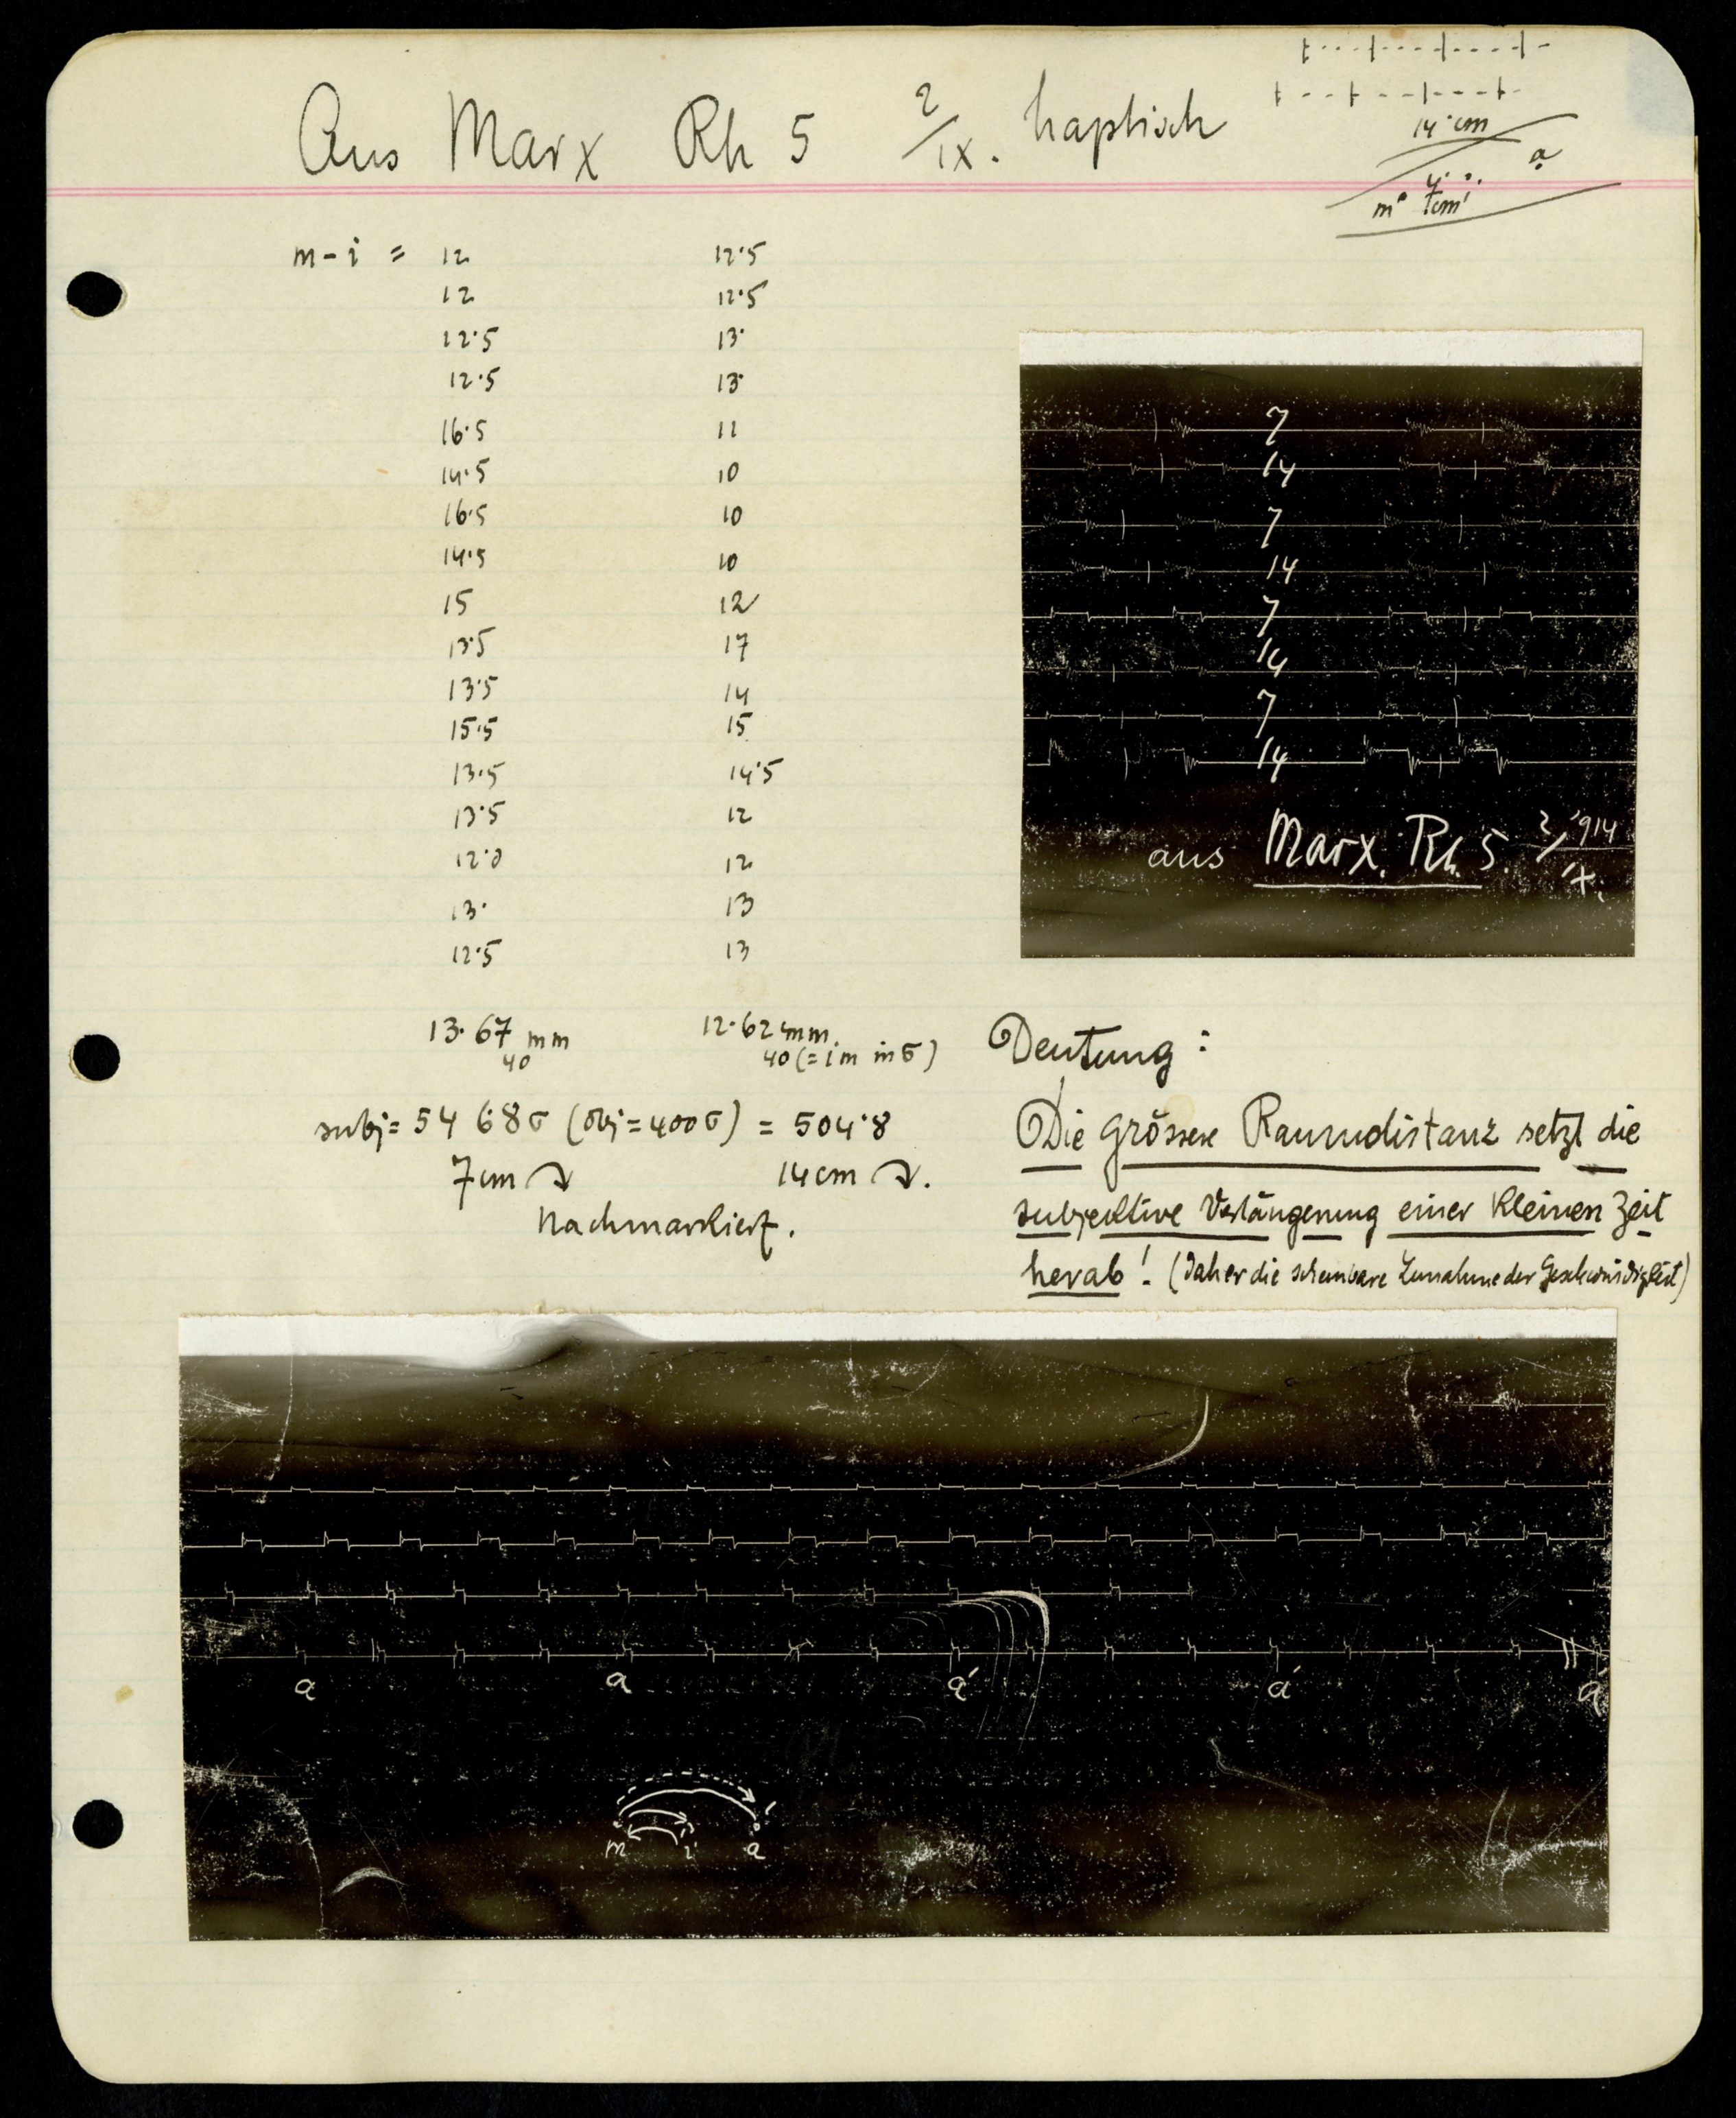 Aus Marx Rh 5 2/IX. haptisch
14 cm
a
m 7cm i
m-i = 12 12·5
12 12·5
12·5 13·
12·5 13·
16·5 11
14·5 10
16·5 10
14·5 10
15 12
13·5 17
13·5 14
15·5 15
13·5 14·5
13·5 12
12·0 12
13· 13
12·5 13
13·67 mm 12·62 mm.
40 40 (=1m in σ)
subj = 546·8σ (obj = 400σ) = 504·8
7cm 14cm
Nachmarkiert.
7
14
7
14
7
14
7
14
aus Marx. Rh. 5. 2/IX. '914
Deutung:
Die grössere Raumdistanz setzt die
subjektive Verlängerung einer kleinen Zeit
herab! (Daher die scheinbare Zunahme der Geschwindigkeit)
a a a' a' a'
m i a'